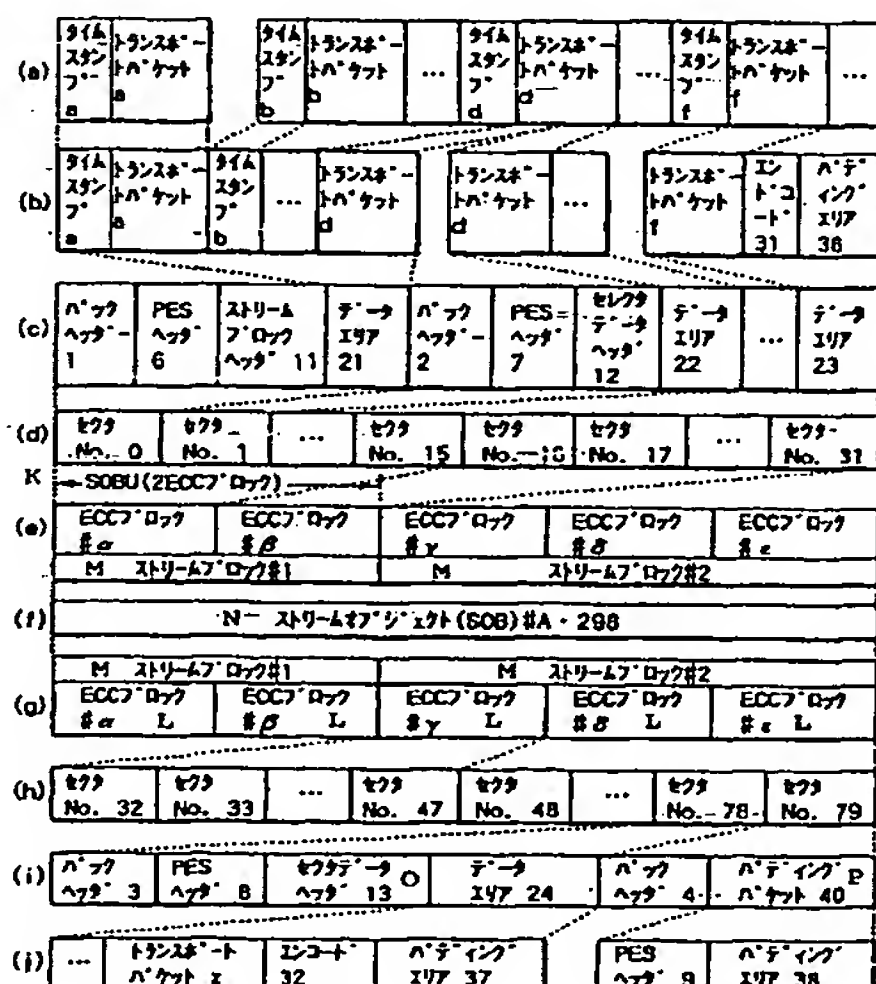 (a) タイムスタンプ a トランスポートパケット a タイムスタンプ b トランスポートパケット b … タイムスタンプ d トランスポートパケット d … タイムスタンプ f トランスポートパケット f …
(b) タイムスタンプ a トランスポートパケット a タイムスタンプ b … トランスポートパケット d トランスポートパケット d … トランスポートパケット f エンドコード 31 パディングエリア 36
(c) パックヘッダー 1 PESヘッダ 6 ストリームブロックヘッダ 11 データエリア 21 パックヘッダー 2 PESヘッダ 7 セレクタデータヘッダ 12 データエリア 22 … データエリア 23
(d) セクタ No. 0 セクタ No. 1 … セクタ No. 15 セクタ No. 16 セクタ No. 17 … セクタ No. 31
K SOBU(2ECCブロック)
(e) ECCブロック #α ECCブロック #β ECCブロック #γ ECCブロック #δ ECCブロック #ε
M ストリームブロック#1 M ストリームブロック#2
(f) N ストリームオブジェクト(SOB)#A・298
M ストリームブロック#1 M ストリームブロック#2
(g) ECCブロック #α L ECCブロック #β L ECCブロック #γ L ECCブロック #δ L ECCブロック #ε L
(h) セクタ No. 32 セクタ No. 33 … セクタ No. 47 セクタ No. 48 … セクタ No. 78 セクタ No. 79
(i) パックヘッダ 3 PESヘッダ 8 セクタデータヘッダ 13 O データエリア 24 パックヘッダ 4 パディングパケット 40 P
(j) … トランスポートパケット z エンコード 32 パディングエリア 37 PESヘッダ 9 パディングエリア 38